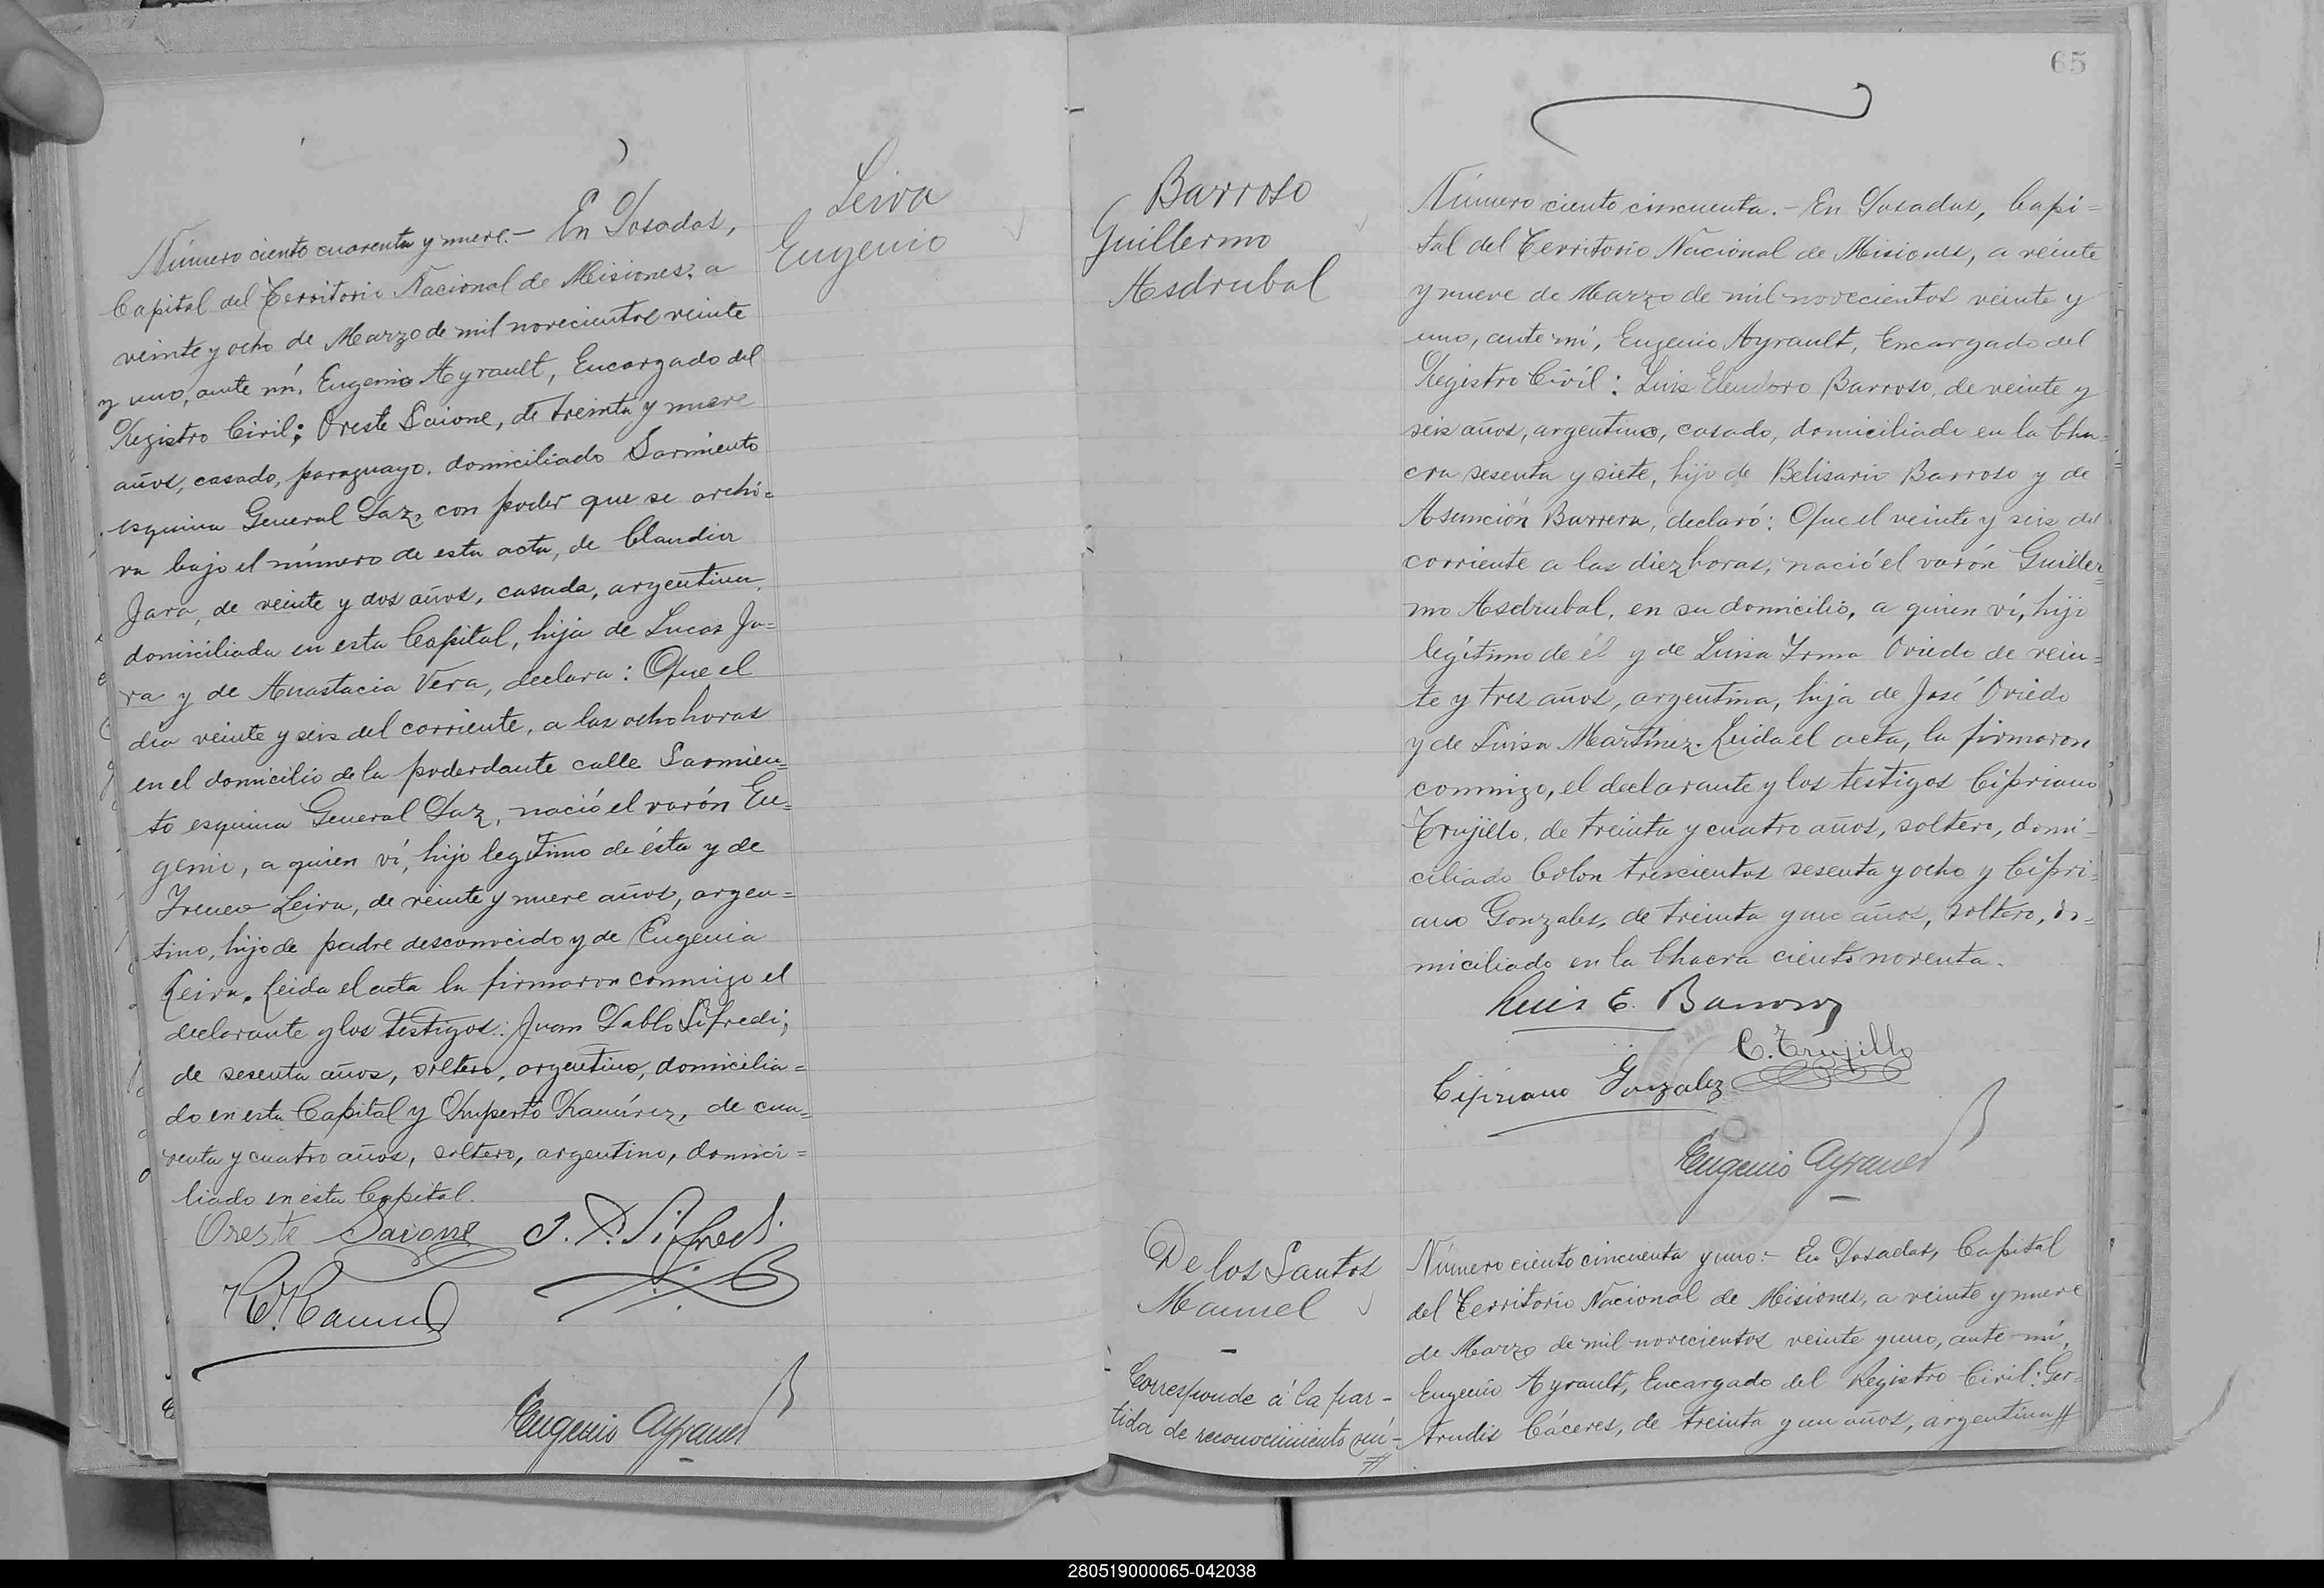 Número ciento cuarenta y nueve.- En Posadas,
Capital del Territorio Nacional de Misiones, a
veinte y ocho de Marzo de mil novecientos veinte
y uno, ante mí, Eugenio Ayrault, Encargado del
Registro Civil: Oreste Saione, de treinta y nueve
años, casado, paraguayo, domiciliado Sarmiento
esquina General Paz, con poder que se archi=
va bajo el número de esta acta, de Claudia
Jara, de veinte y dos años, casada, argentina,
domiciliada en esta Capital, hija de Lucas Ja=
ra y de Anastacia Vera, declara: Que el
día veinte y seis del corriente, a las ocho horas
en el domicilio de la poderdante calle Sarmien=
to esquina General Paz, nació el varón Eu=
genio, a quien ví, hijo legítimo de ésta y de
Ireneo Leiva, de veinte y nueve años, argen=
tino, hijo de padre desconocido y de Eugenia
Leiva. Leida el acta la firmaron conmigo el
declarante y los testigos: Juan Pablo Sifredi,
de sesenta años, soltero, argentino, domicilia=
do en esta Capital y Ruperto Ramírez, de cua=
renta y cuatro años, soltero, argentino, domici=
liado en esta Capital.
Oreste Saione J. P. Sifredi
R. Ramirez
Eugenio Ayrault
Leiva
Eugenio
65
Barroso
Guillermo
Asdrubal
Número ciento cincuenta.- En Posadas, Capi=
tal del Territorio Nacional de Misiones, a veinte
y nueve de Marzo de mil novecientos veinte y
uno, ante mí, Eugenio Ayrault, Encargado del
Registro Civil: Luis Eleudoro Barroso, de veinte y
seis años, argentino, casado, domiciliado en la Cha=
cra sesenta y siete, hijo de Belisario Barroso y de
Asunción Barrera, declaró: Que el veinte y seis del
corriente a las diez horas, nació el varón Guiller=
mo Asdrubal, en su domicilio, a quien ví, hijo
legítimo de él y de Luisa Irma Oviedo de vein=
te y tres años, argentina, hija de José Oviedo
y de Luisa Martínez. Leida el acta, la firmaron
conmigo, el declarante y los testigos Cipriano
Trujillo, de treinta y cuatro años, soltero, domi=
ciliado Colon trescientos sesenta y ocho y Cipri=
ano Gonzales, de treinta y un años, soltero, do=
miciliado en la Chacra ciento noventa.
Luis E. Barroso
C. Trujillo
Cipriano Gonzalez
Eugenio Ayrault
De los Santos
Manuel
Corresponde á la par-
tida de reconocimiento
Número ciento cincuenta y uno:- En Posadas, Capital
del Territorio Nacional de Misiones, a veinte y nueve
de Marzo de mil novecientos veinte y uno, ante mí,
Eugenio Ayrault, Encargado del Registro Civil: Ger=
trudis Cáceres, de treinta y un años, argentina #
280519000065-042038